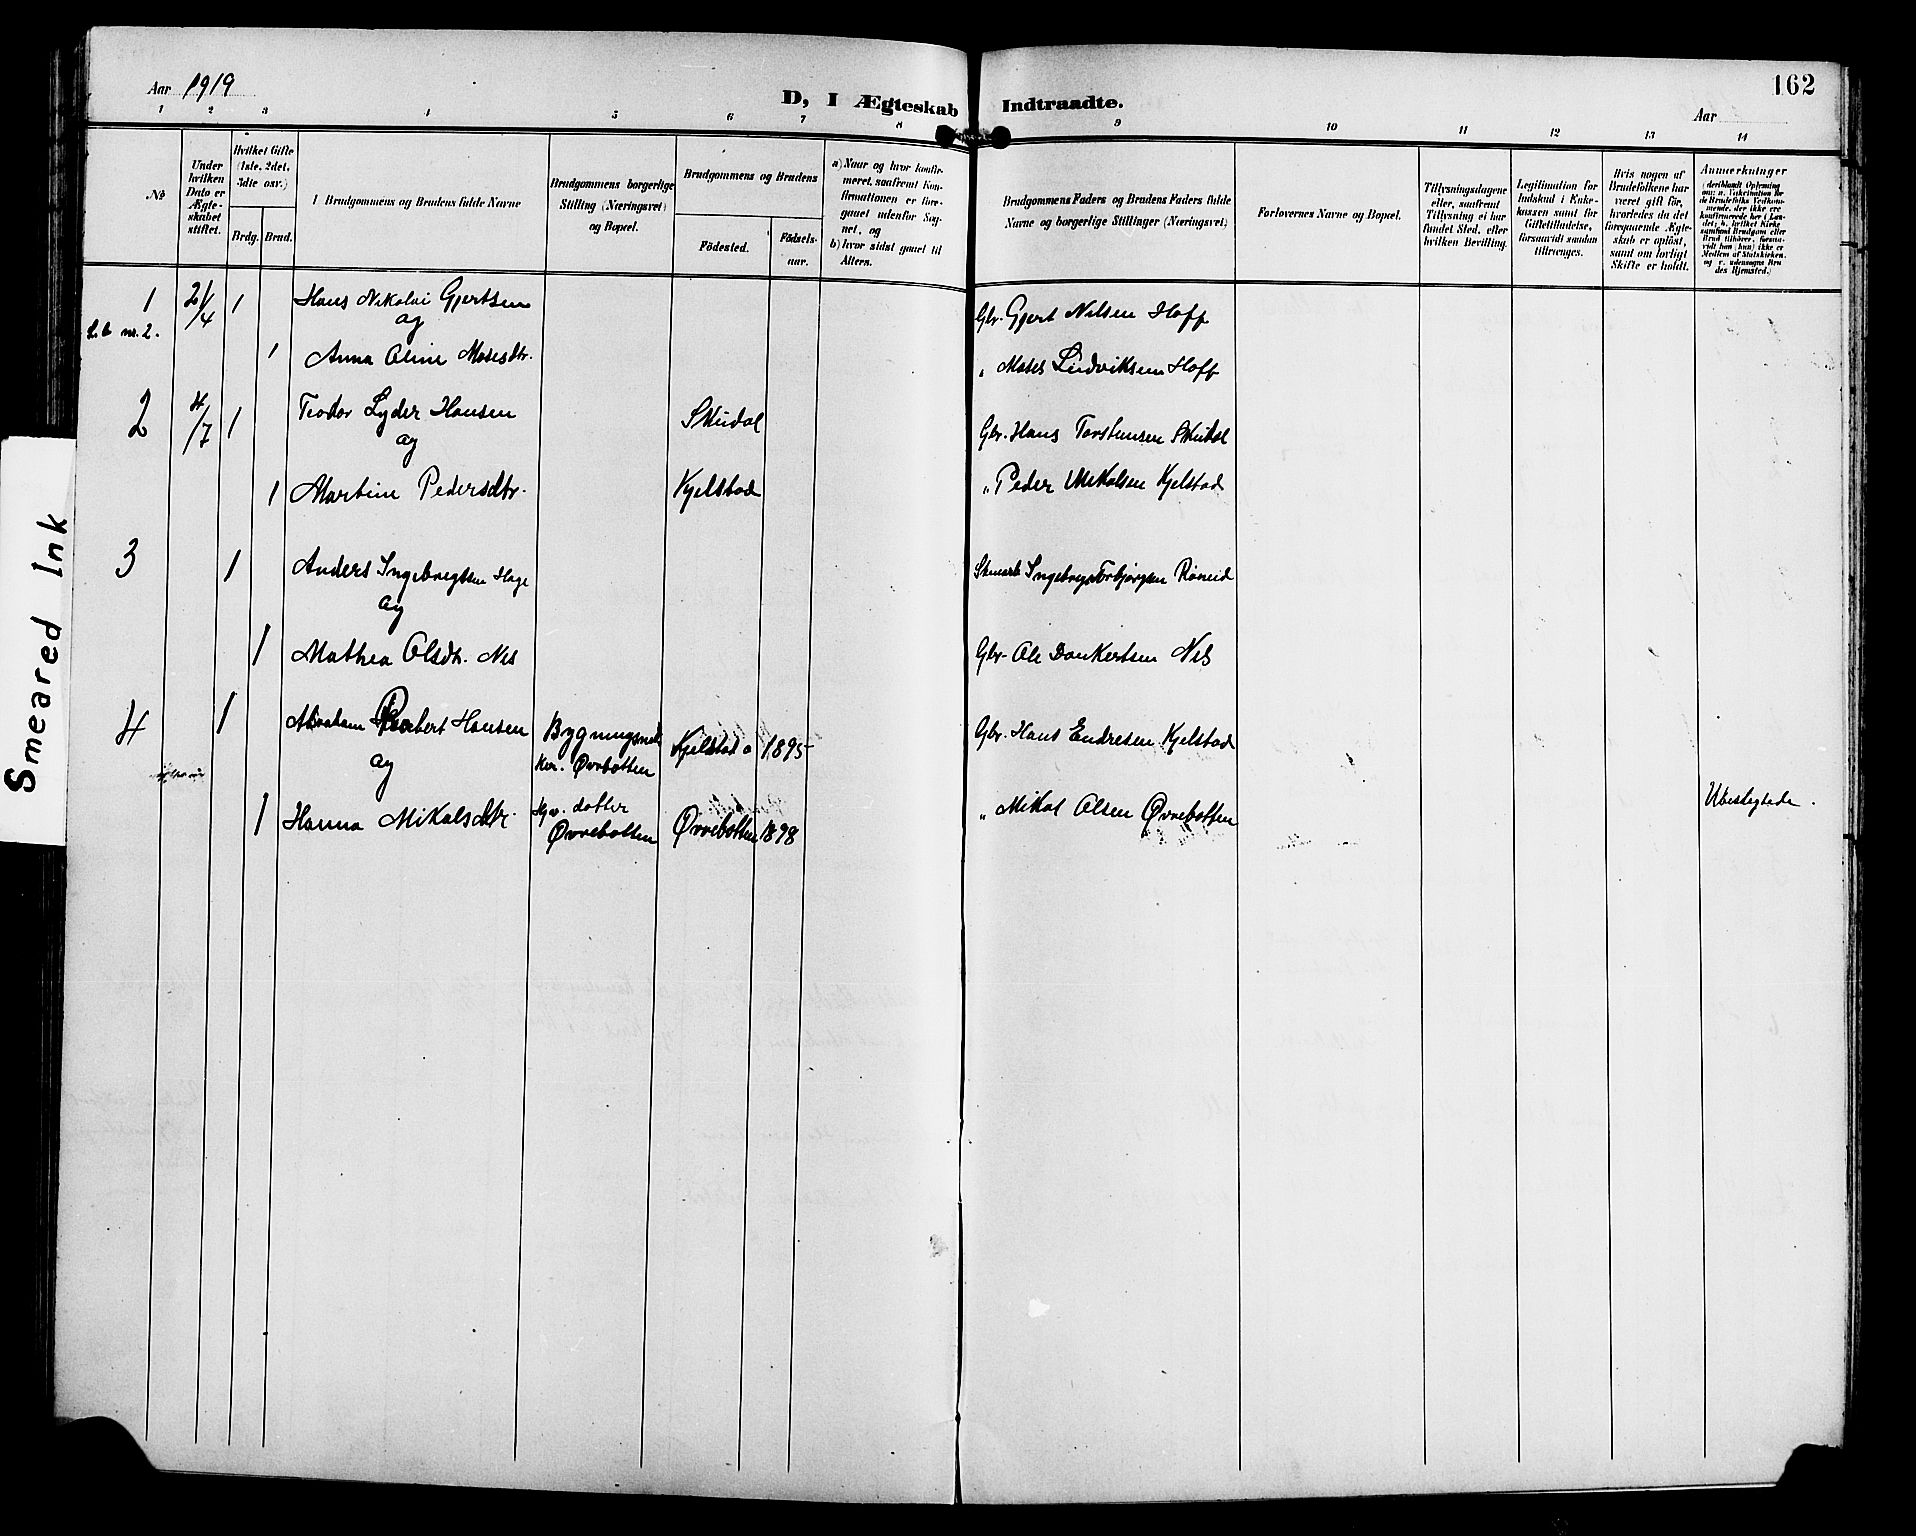 Smeared Ink
Aar 1919
D, I Ægteskab Indtraadte.
162
Aar
1 2 3 4 5 6 7 8 9 10 11 12 13 14
No
Under hvilken Dato er Ægteskabet stiftet.
Hvilket Gifte (1ste, 2det, 3die osv.)
Brdg. Brud.
Brudgommens og Brudens fulde Navne
Brudgommens borgerlige Stilling (Næringsvei) og Bopæl.
Brudgommens og Brudens
Födested.
Födselsaar.
a) Naar og hvor konfirmeret, saafremt Konfirmationen er foregaaet udenfor Sognet, og
b) hvor sidst gaaet til Alters.
Brudgommens Faders og Brudens Faders fulde Navne og borgerlige Stillinger (Næringsvei)
Forlovernes Navne og Bopæl.
Tillysningsdagene eller, saafremt Tillysning ei har fundet Sted, efter hvilken Bevilling.
Legitimation for Indskud i Enkekassen samt for Giftetilladelse, forsaavidt saadan tiltrænges.
Hvis nogen af Brudefolkene har været gift för, hvorledes da det foregaaende Ægteskab er oplöst, samt om lovligt Skifte er holdt.
Anmærkninger
1 2/4 1 Hans Nikolai Gjertsen Gbr. Gjert Nilsen Hoff
L.b nr. 2. og
1 Anna Oline Mosesdtr. " Moses Ludviksen Hoff
2 4/7 1 Teodor Lyder Hansen Skudal Gbr. Hans Torstensen Skudal
og
1 Martine Pedersdtr. Kjelstad " Peder Mikalsen Kjelstad
3 1 Anders Ingebrigtsen Hage Ingebrigt Torbjørgsen Røneid
og
1 Mathea Olsdtr. Nes Gbr. Ole Dankertsen Nes
4 1 Abraham Hansen Kjelstad 1895 Gbr. Hans Endresen Kjelstad
og Øvrebotten
1 Hanna Mikalsdtr. datter Øvrebotten Øvrebotten 1898 " Mikal Olsen Øvrebotten Ubeslegtede.